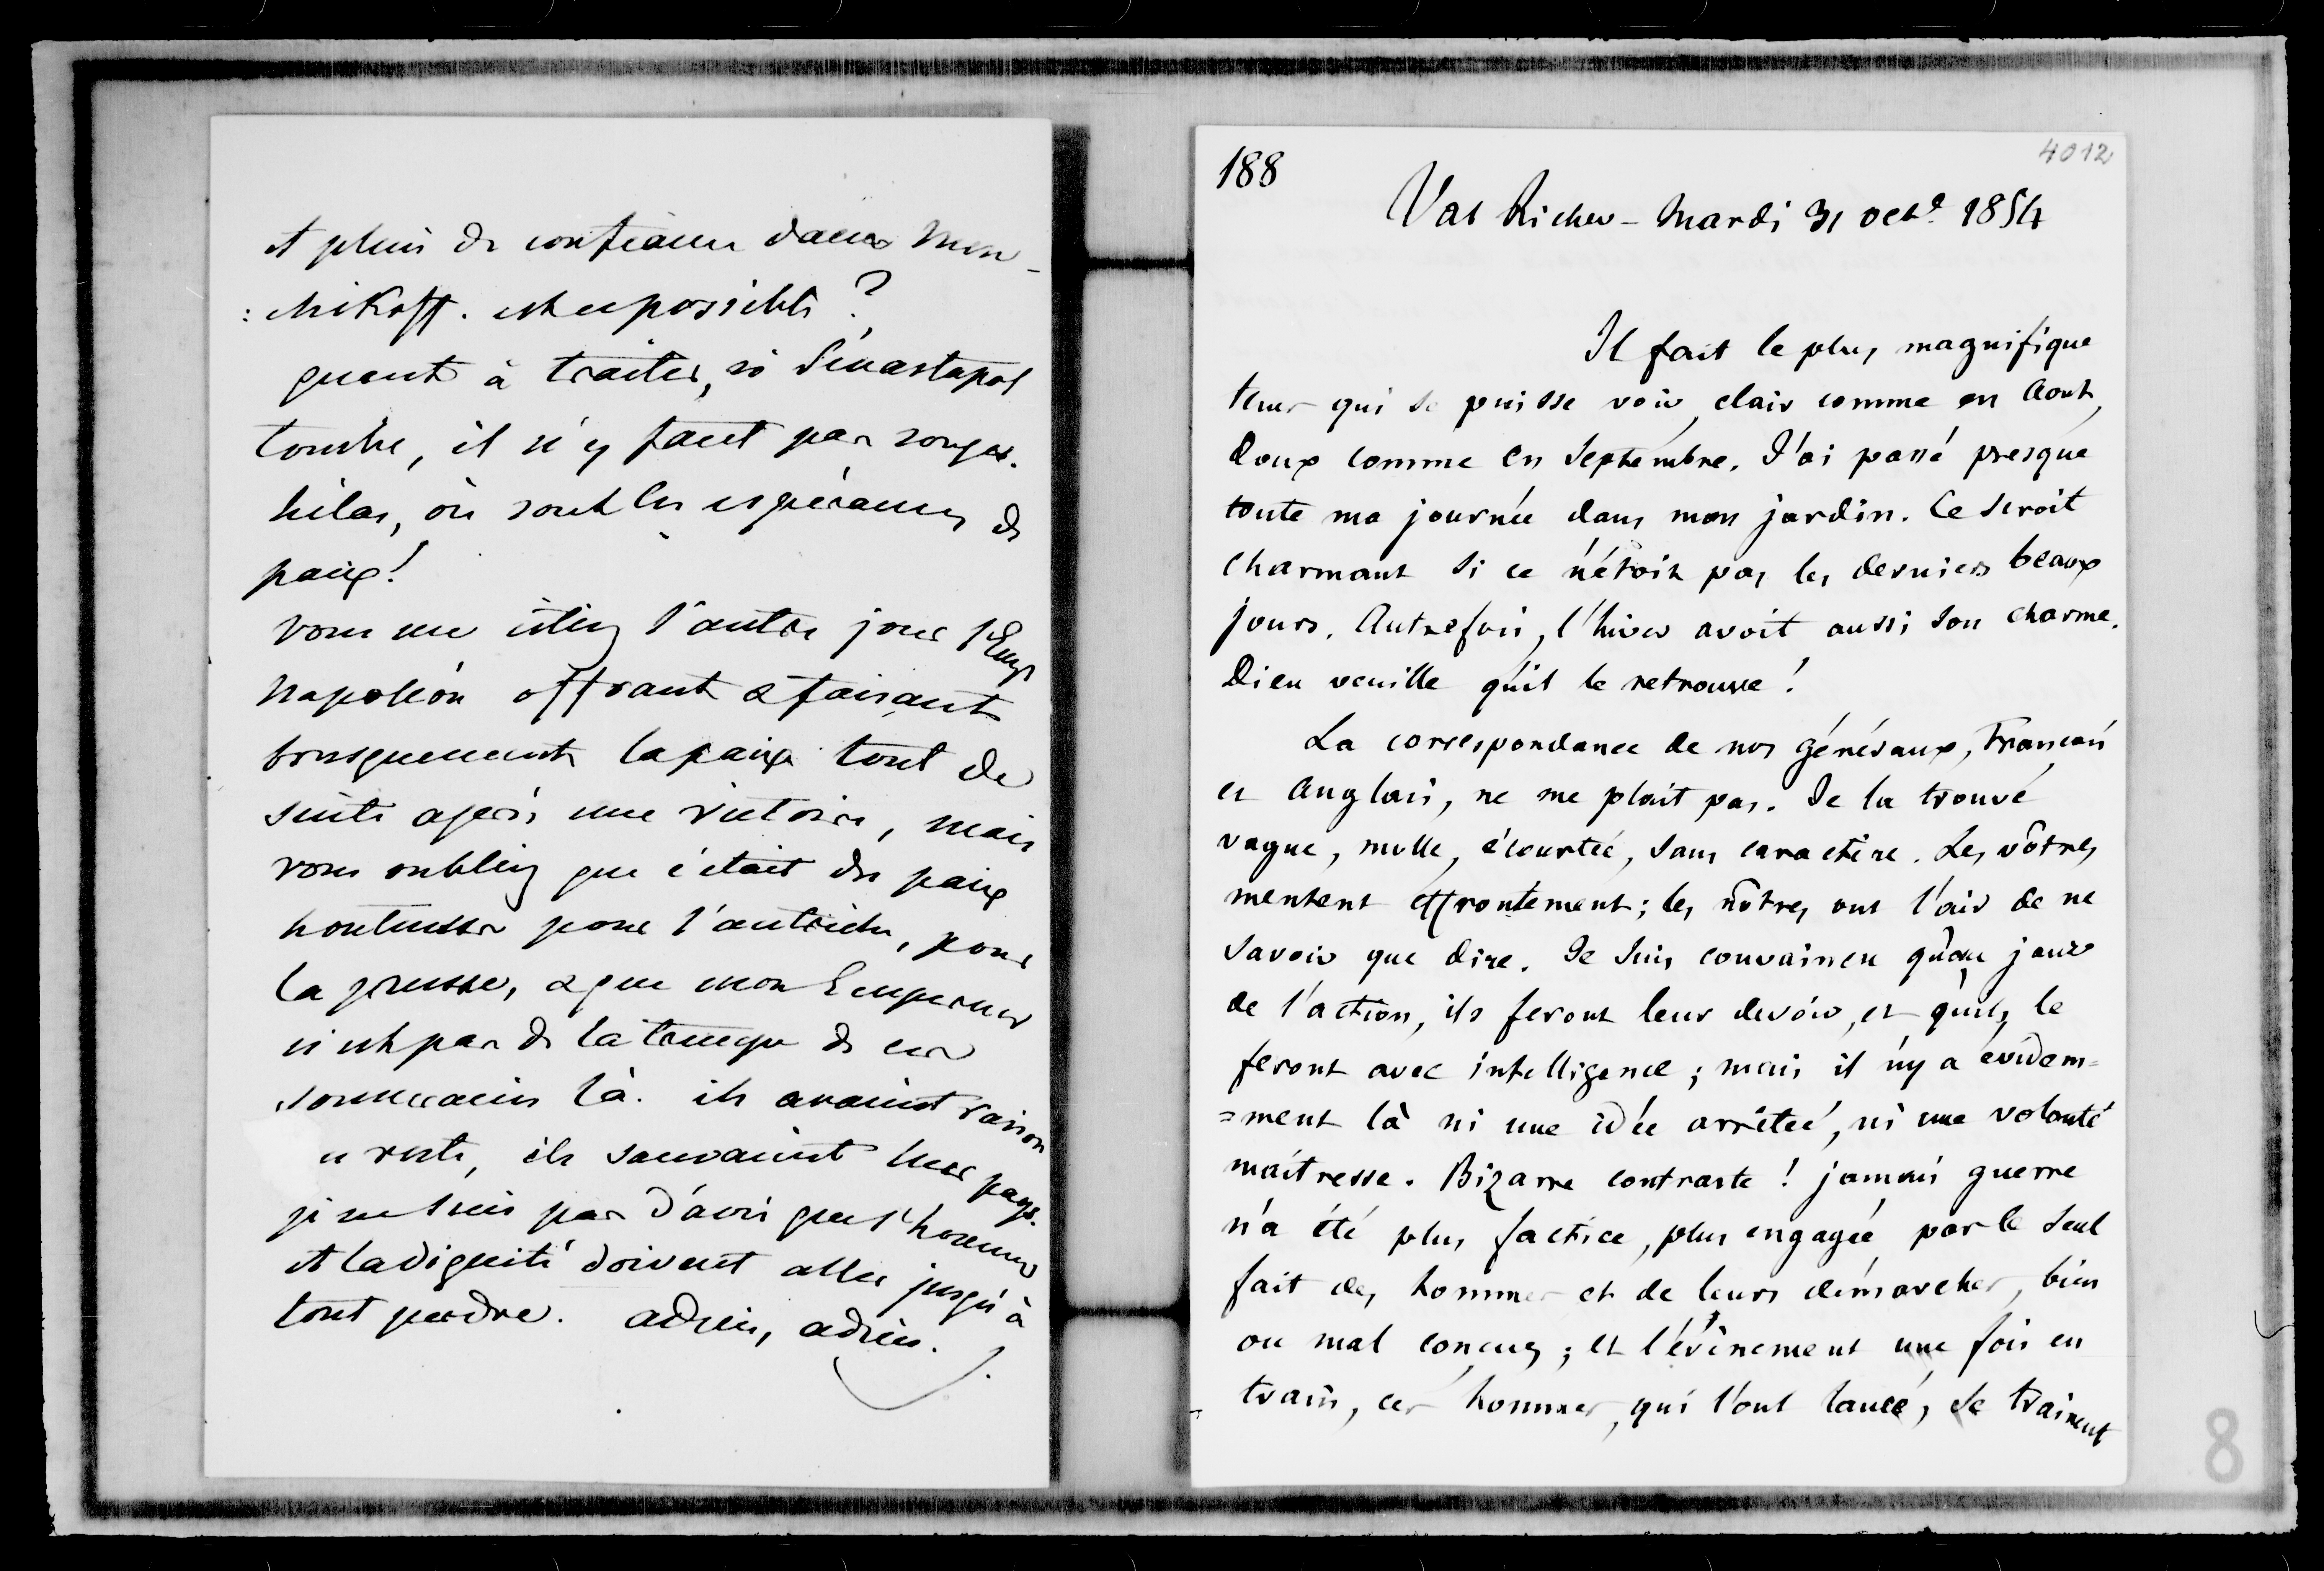 et plein de confiance dans Men-
:chikoff. est ce possible ?
quant à traiter, si Sévastopol
tombe, il n'y faut pas songer.
hélas, où sont les espérances de
paix !
vous me citiez l'autre jour l'Emp
Napoléon offrant & faisant
brusquement la paix tout de
suite après une victoire, mais
vous oubliez que c'était des paix
honteuses pour l'autriche, pour
la prusse, & que mon Empereur
n'est pas de la trempe de ces
souverains là. ils avaient raison
du reste, ils sauvaient leur pays.
je ne suis pas d'avis que l'honneur
et la dignité doivent aller jusqu'à
tout perdre. adieu, adieu.
188
4012
Val Richer - Mardi 31 octe 1854
Il fait le plus magnifique
tems qui se puisse voir, clair comme en Aout,
doux comme en Septembre. J'ai passé presque
toute ma journée dans mon jardin. Ce seroit
charmant si ce n'étoit pas les derniers beaux
jours. Autrefois, l'hiver avoit aussi son charme.
Dieu veuille qu'il le retrouve !
La correspondance de nos généraux, Français
et Anglais, ne me plait pas. Je la trouve
vague, molle, écourtée, sans caractère. Les vôtres
mentent effrontément ; les nôtres ont l'air de ne
savoir que dire. Je suis convaincu qu'au jour
de l'action, ils feront leur devoir, et qu'ils le
feront avec intelligence ; mais il n'y a évidem=
=ment là ni une idée arrêtée, ni une volonté
maitresse. Bizarre contraste ! jamais guerre
n'a été plus factice, plus engagée par le seul
fait des hommes et de leurs démarches, bien
ou mal conçues ; et l'évènement une fois en
train, ces hommes, qui l'ont lancé, se trainent
8